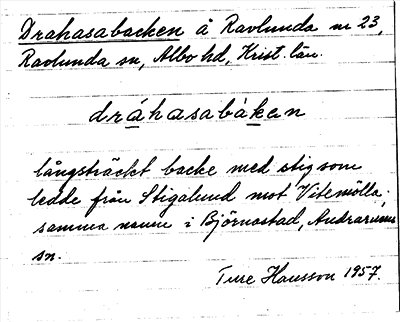 Drahasabacken å Ravlunda nr 23,
Ravlunda sn, Albo hd, Krist. län.
dráhasabáken
långsträckt backe med stig som
ledde från Stigalund mot Vitemölla;
samma namn i Björnastad, Andrarums
sn.
Ture Hansson 1957.